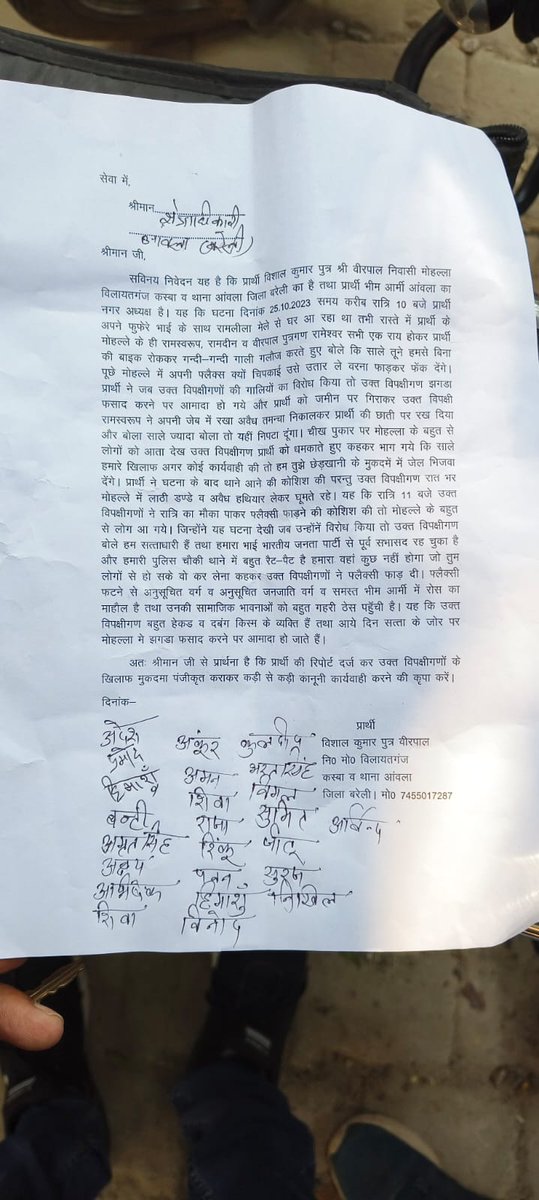 सेवा में,
श्रीमान क्षेत्राधिकारी
आंवला (बरेली)
श्रीमान जी,
सविनय निवेदन यह है कि प्रार्थी विशाल कुमार पुत्र श्री वीरपाल निवासी मोहल्ला
विलायतगंज कस्बा व थाना आंवला जिला बरेली का है तथा प्रार्थी भीम आर्मी आंवला का
नगर अध्यक्ष है। यह कि घटना दिनांक 25.10.2023 समय करीब रात्रि 10 बजे प्रार्थी
अपने फुफेरे भाई के साथ रामलीला मेले से घर आ रहा था तभी रास्ते में प्रार्थी के
मोहल्ले के ही रामस्वरूप, रामदीन व वीरपाल पुत्रगण रामेश्वर सभी एक राय होकर प्रार्थी
की बाइक रोककर गन्दी-गन्दी गाली गलौज करते हुए बोले कि साले तूने हमसे बिना
पूछे मोहल्ले में अपनी फ्लैक्स क्यों चिपकाई उसे उतार ले वरना फाड़कर फेंक देंगे।
प्रार्थी ने जब उक्त विपक्षीगणों की गालियों का विरोध किया तो उक्त विपक्षीगण झगडा
फसाद करने पर आमादा हो गये और प्रार्थी को जमीन पर गिराकर उक्त विपक्षी
रामस्वरूप ने अपनी जेब में रखा अवैध तमन्चा निकालकर प्रार्थी की छाती पर रख दिया
और बोला साले ज्यादा बोला तो यहीं निपटा दूंगा। चीख पुकार पर मोहल्ला के बहुत से
लोगों को आता देख उक्त विपक्षीगण प्रार्थी को धमकाते हुए कहकर भाग गये कि साले
हमारे खिलाफ अगर कोई कार्यवाही की तो हम तुझे छेड़खानी के मुकदमें में जेल भिजवा
देंगे। प्रार्थी ने घटना के बाद थाने आने की कोशिश की परन्तु उक्त विपक्षीगण रात भर
मोहल्ले में लाठी डण्डे व अवैध हथियार लेकर घूमते रहे। यह कि रात्रि 11 बजे उक्त
विपक्षीगणों ने रात्रि का मौका पाकर फ्लैक्सी फाड़ने की कोशिश की तो मोहल्ले के बहुत
से लोग आ गये। जिन्होंने यह घटना देखी जब उन्होंनें विरोध किया तो उक्त विपक्षीगण
बोले हम सत्ताधारी हैं तथा हमारा भाई भारतीय जनता पार्टी से पूर्व सभासद रह चुका है
और हमारी पुलिस चौकी थाने में बहुत रैट-पैट है हमारा वहां कुछ नहीं होगा जो तुम
लोगों से हो सके वो कर लेना कहकर उक्त विपक्षीगणों ने फ्लैक्सी फाड़ दी। फ्लैक्सी
फटने से अनुसूचित वर्ग व अनुसूचित जनजाति वर्ग व समस्त भीम आर्मी में रोस का
माहौल है तथा उनकी सामाजिक भावनाओं को बहुत गहरी ठेस पहुँची है। यह कि उक्त
विपक्षीगण बहुत हेकड व दबंग किस्म के व्यक्ति हैं तथा आये दिन सत्ता के जोर पर
मोहल्ला मे झगडा फसाद करने पर आमादा हो जाते हैं।
अतः श्रीमान जी से प्रार्थना है कि प्रार्थी की रिपोर्ट दर्ज कर उक्त विपक्षीगणों के
खिलाफ मुकदमा पंजीकृत कराकर कड़ी से कड़ी कानूनी कार्यवाही करने की कृपा करें।
दिनांक–
प्रार्थी
विशाल कुमार पुत्र वीरपाल
नि० मो० विलायतगंज
कस्बा व थाना आंवला
जिला बरेली। मो० 7455017287
अंकुर कुलदीप
प्रमोद
अमन भरत सिंह
शिवा
बन्टी राजा सुमित अरबिन्द
रिंकू जीतू
अक्षय पवन सूरज
अभिषेक हिमांशु निखिल
शिवा विनोद